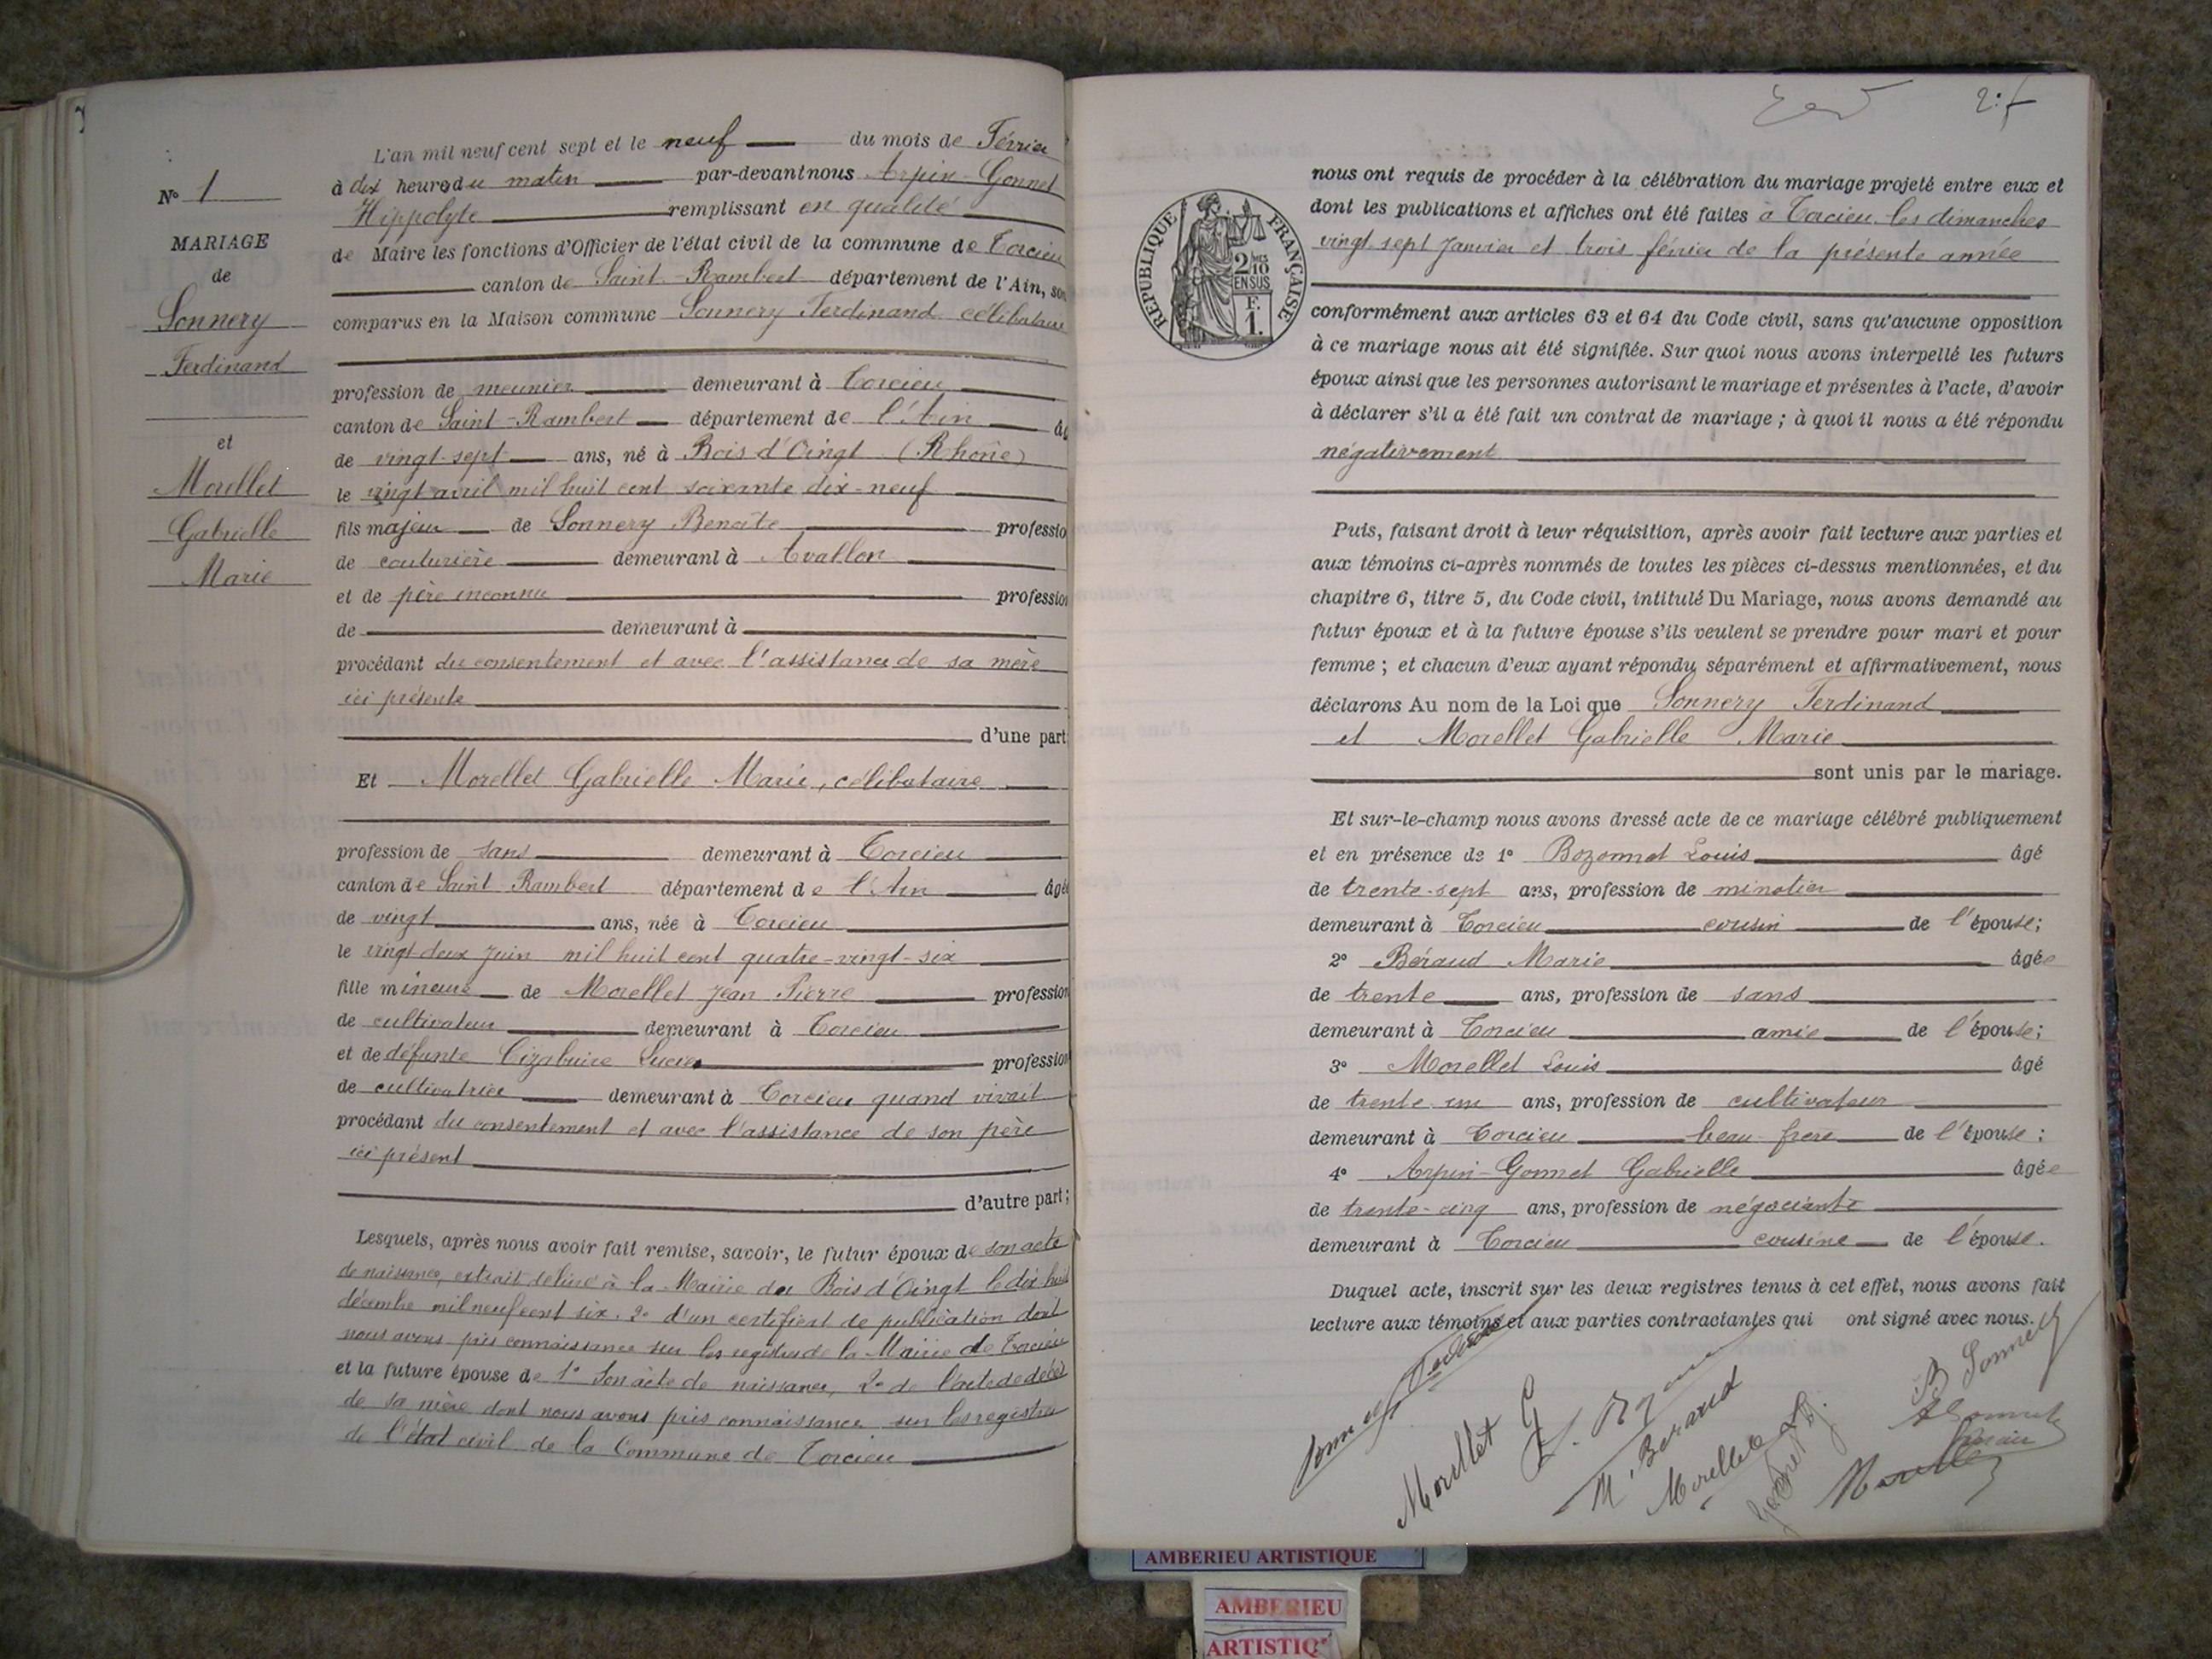 L'an mil neuf cent sept et le neuf du mois de Février
à dix heures du matin par-devant nous Arpin-Gonnet
Hippolyte remplissant en qualité
de Maire les fonctions d'Officier de l'état civil de la commune de Torcieu
canton de Saint-Rambert département de l'Ain, son
comparus en la Maison commune Sonnery Ferdinand célibataire
profession de meunier demeurant à Torcieu
canton de Saint-Rambert département de l'Ain âg
de vingt-sept ans, né à Bois d'Oingt (Rhône)
le vingt avril mil huit cent soixante dix-neuf
fils majeur de Sonnery Benoîte professio
de couturière demeurant à Avallon
et de père inconnu profession
de demeurant à
procédant du consentement et avec l'assistance de sa mère
ici présente
d'une part
Et Morellet Gabrielle Marie, célibataire
profession de sans demeurant à Torcieu
canton de Saint Rambert département de l'Ain âgé
de vingt ans, née à Torcieu
le vingt deux juin mil huit cent quatre-vingt-six
fille mineure de Morellet Jean Pierre profession
de cultivateur demeurant à Torcieu
et de défunte Cizabuire Lucie profession
de cultivatrice demeurant à Torcieu quand vivait
procédant du consentement et avec l'assistance de son père
ici présent
d'autre part;
Lesquels, après nous avoir fait remise, savoir, le futur époux de son acte
de naissance, extrait délivré à la Mairie du Bois d'Oingt le dix huit
décembre mil neuf cent six. 2° d'un certificat de publication dont
nous avons pris connaissance sur les registres de la Mairie de Torcieu
et la future épouse de 1° Son acte de naissance, 2° de l'acte de décès
de sa mère dont nous avons pris connaissance sur les registres
de l'état civil de la Commune de Torcieu
N° 1
MARIAGE
de
Sonnery
Ferdinand
et
Morellet
Gabrielle
Marie
RÉPUBLIQUE FRANÇAISE
2/10
EN SUS
F.
1.
nous ont requis de procéder à la célébration du mariage projeté entre eux et
dont les publications et affiches ont été faites à Torcieu les dimanches
vingt-sept janvier et trois février de la présente année
conformément aux articles 63 et 64 du Code civil, sans qu'aucune opposition
à ce mariage nous ait été signifiée. Sur quoi nous avons interpellé les futurs
époux ainsi que les personnes autorisant le mariage et présentes à l'acte, d'avoir
à déclarer s'il a été fait un contrat de mariage ; à quoi il nous a été répondu
négativement
Puis, faisant droit à leur réquisition, après avoir fait lecture aux parties et
aux témoins ci-après nommés de toutes les pièces ci-dessus mentionnées, et du
chapitre 6, titre 5, du Code civil, intitulé Du Mariage, nous avons demandé au
futur époux et à la future épouse s'ils veulent se prendre pour mari et pour
femme ; et chacun d'eux ayant répondu séparément et affirmativement, nous
déclarons Au nom de la Loi que Sonnery Ferdinand
et Morellet Gabrielle Marie
sont unis par le mariage.
Et sur-le-champ nous avons dressé acte de ce mariage célébré publiquement
et en présence de 1° Bozonnet Louis âgé
de trente-sept ans, profession de minotier
demeurant à Torcieu cousin de l'épouse;
2° Béraud Marie âgée
de trente ans, profession de sans
demeurant à Torcieu amie de l'épouse;
3° Morellet Louis âgé
de trente un ans, profession de cultivateur
demeurant à Torcieu beau-frère de l'épouse ;
4° Arpin-Gonnet Gabrielle âgée
de trente-cinq ans, profession de négociante
demeurant à Torcieu cousine de l'épouse.
Duquel acte, inscrit sur les deux registres tenus à cet effet, nous avons fait
lecture aux témoins et aux parties contractantes qui ont signé avec nous.
Sonnery Ferdinand
Morellet G
M. Beraud
Morellet
B Sonnery
AMBERIEU ARTISTIQUE
AMBERIEU
ARTISTIQ